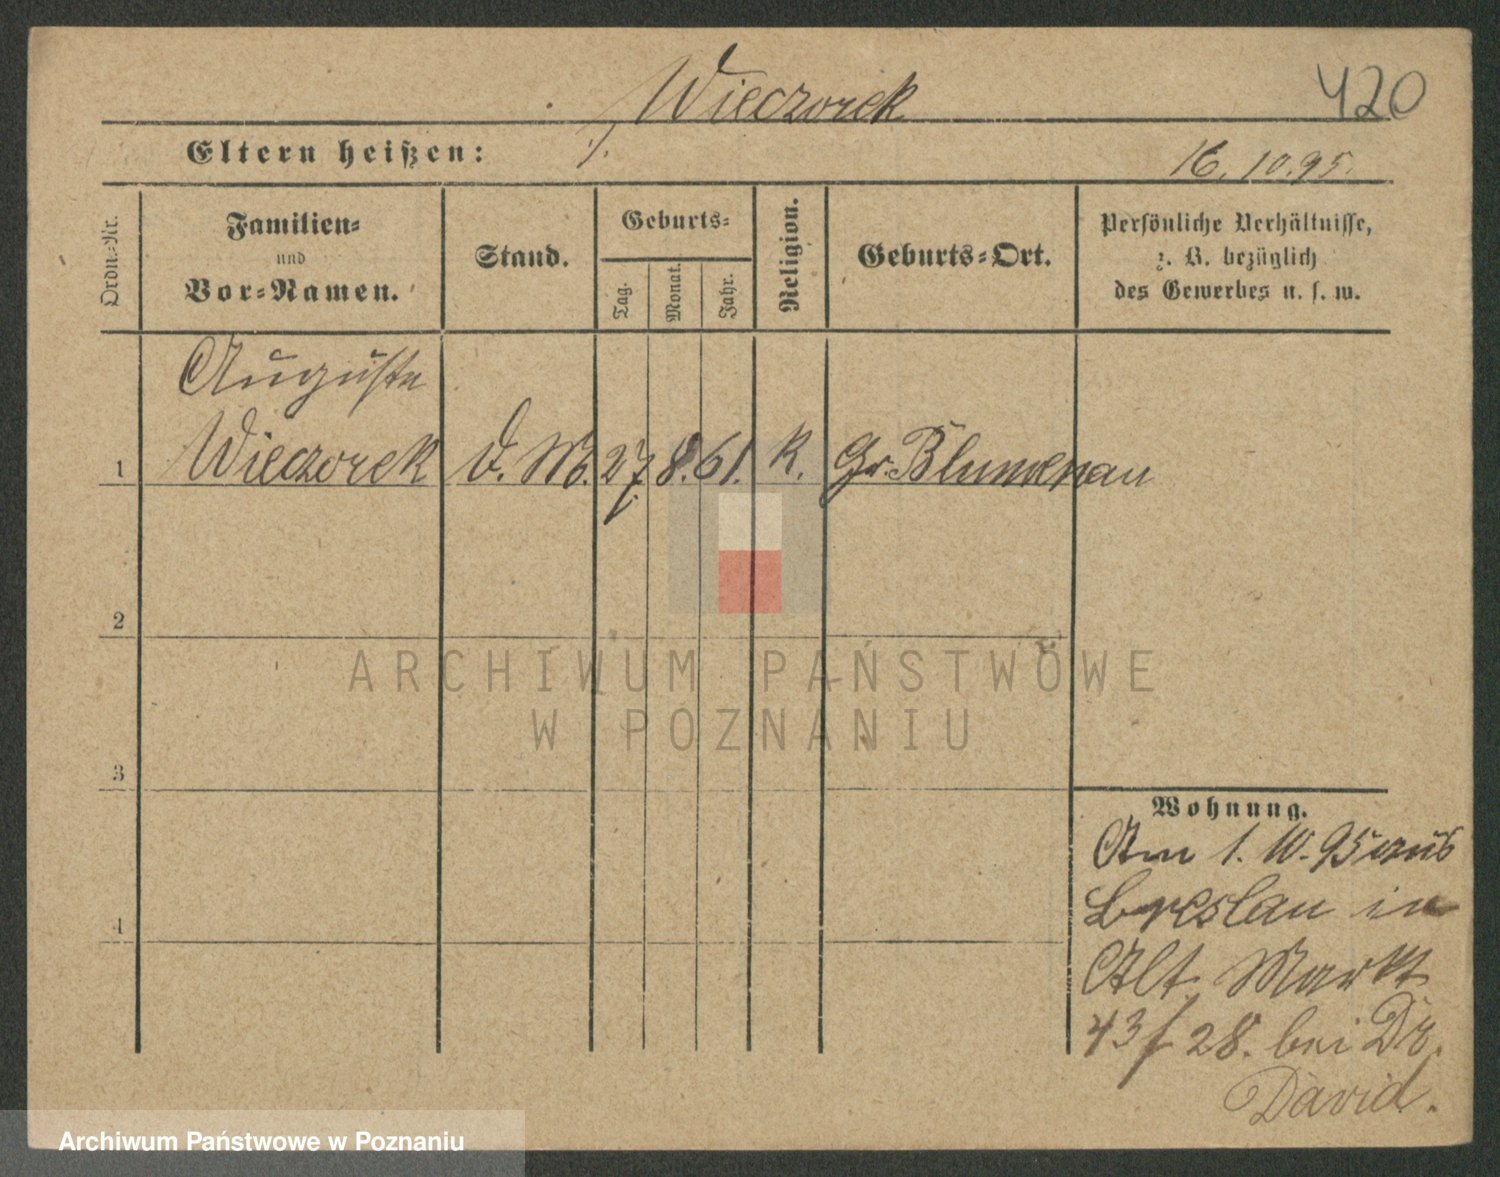 Wieczorek
420
Eltern heißen:
16.10.95.
Ordn.-Nr.
Familien-
und
Vor-Namen.
Stand.
Geburts-
Tag.
Monat.
Jahr.
Religion.
Geburts-Ort.
Persönliche Verhältnisse,
z. B. bezüglich
des Gewerbes u. s. w.
Auguste
1 Wieczorek D. M. 27. 8. 61. K. Gr. Blumenau
2
3
4
Wohnung.
Am 1. 10. 95 aus
Breslau in
Alt Markt
43/28. bei Dr.
David.
ARCHIWUM PAŃSTWOWE
W POZNANIU
Archiwum Państwowe w Poznaniu